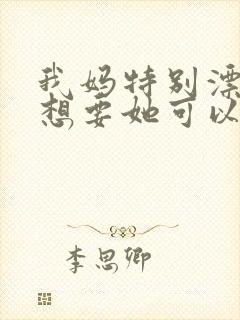 我妈特别漂
想要她可以
李思卿